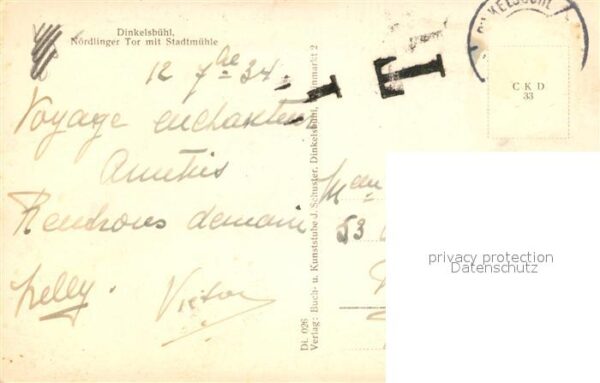 Dinkelsbühl,
Nördlinger Tor mit Stadtmühle
12 7bre 34.
Voyage enchanteur
Amitiés
Rentrons demain
Nelly. Victor
Dl. 026
Verlag: Buch- u. Kunststube J. Schuster, Dinkelsbühl,
T
DINKELSBÜHL
C K D
33
53
privacy protection
Datenschutz